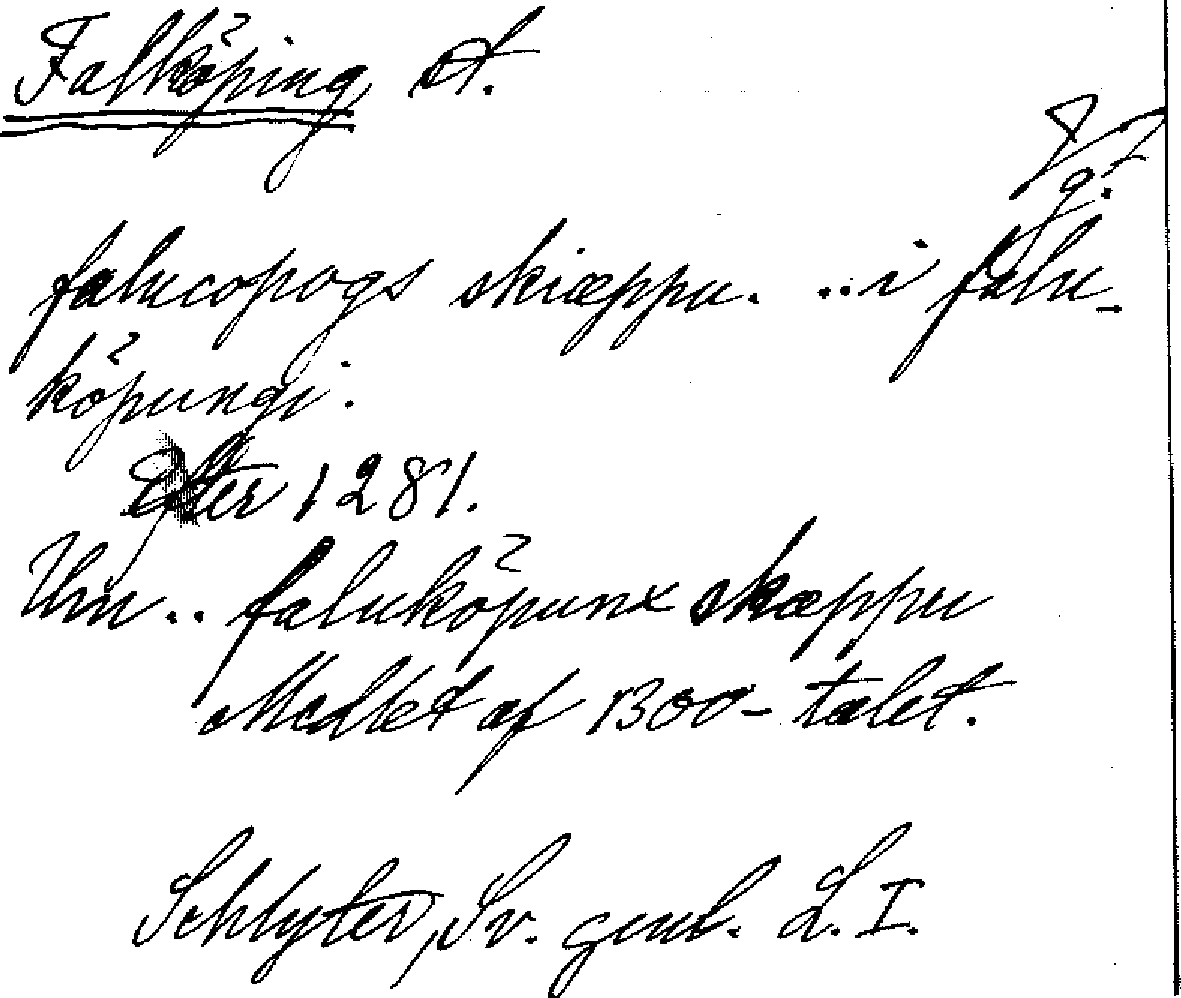 Falköping, st.
Vg.
falucopogs skiæppu. ..i falu-
köpungi.
Efter 1281.
Um.. faluköpunx skæppu
Medlet af 1300-talet.
Schlyter, Sv. gml. L. I.